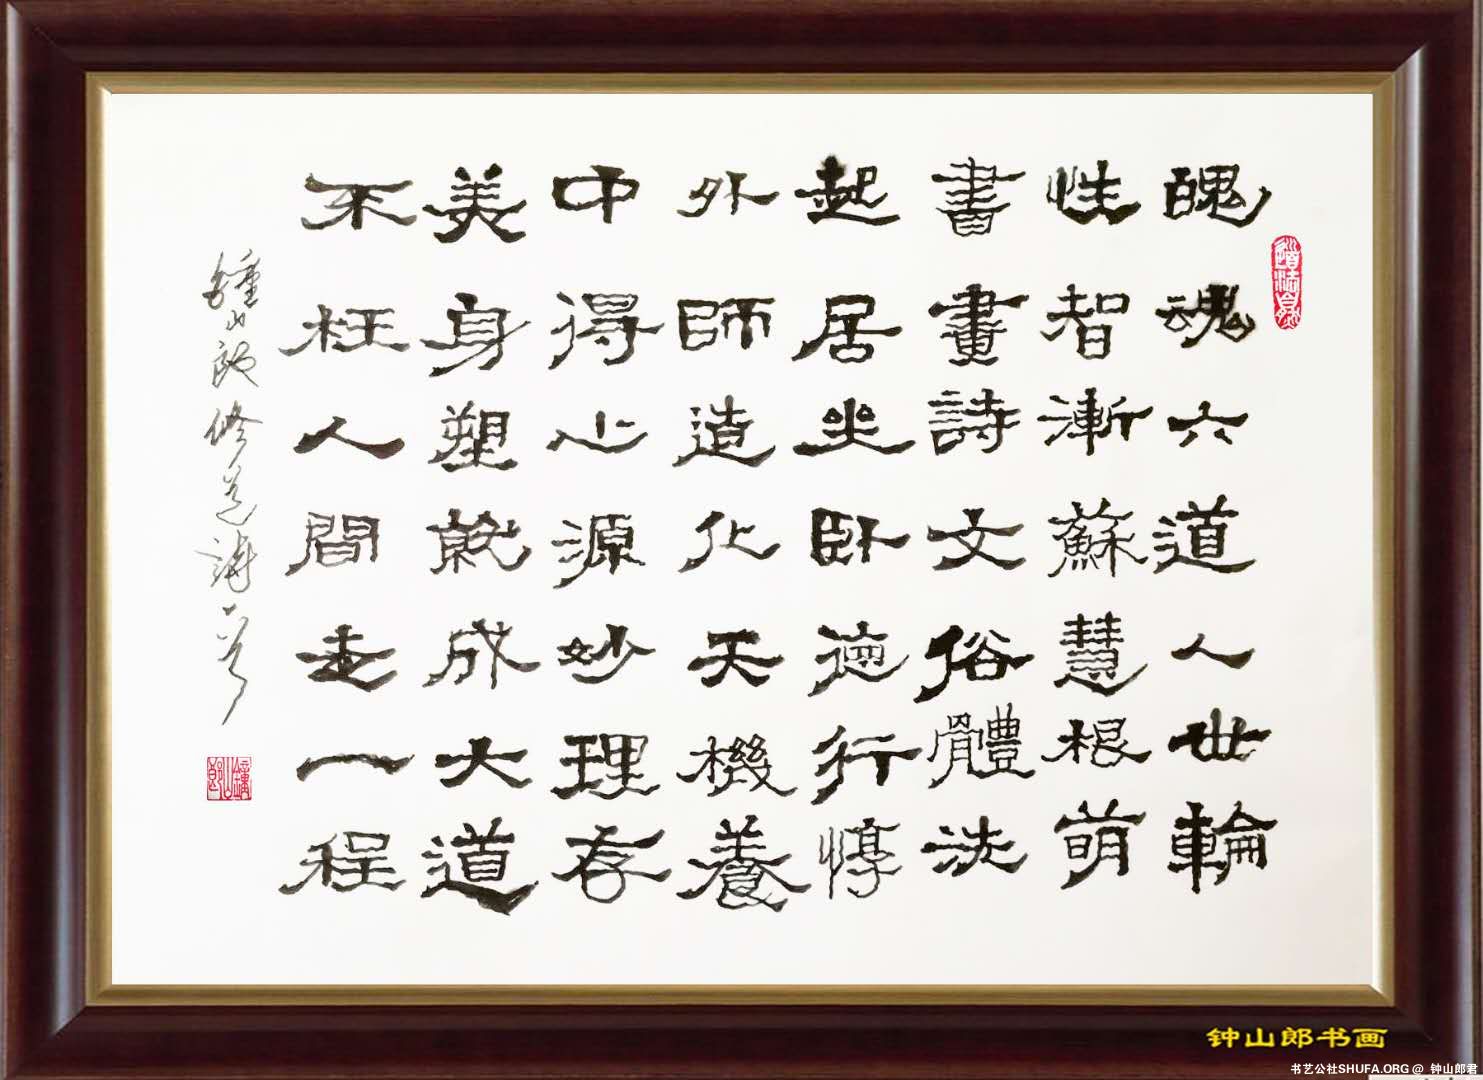 醜魂六道人世輪
性智漸蘇慧根萌
書畫詩文俗體法
起居坐卧德行惇
外師造化天機養
中得心源妙理存
美身塑就成大道
不枉人間走一程
鐘山郎修道詩之
道法自然
鐘山郎
钟山郎书画
书艺公社SHUFA.ORG @ 钟山郎君